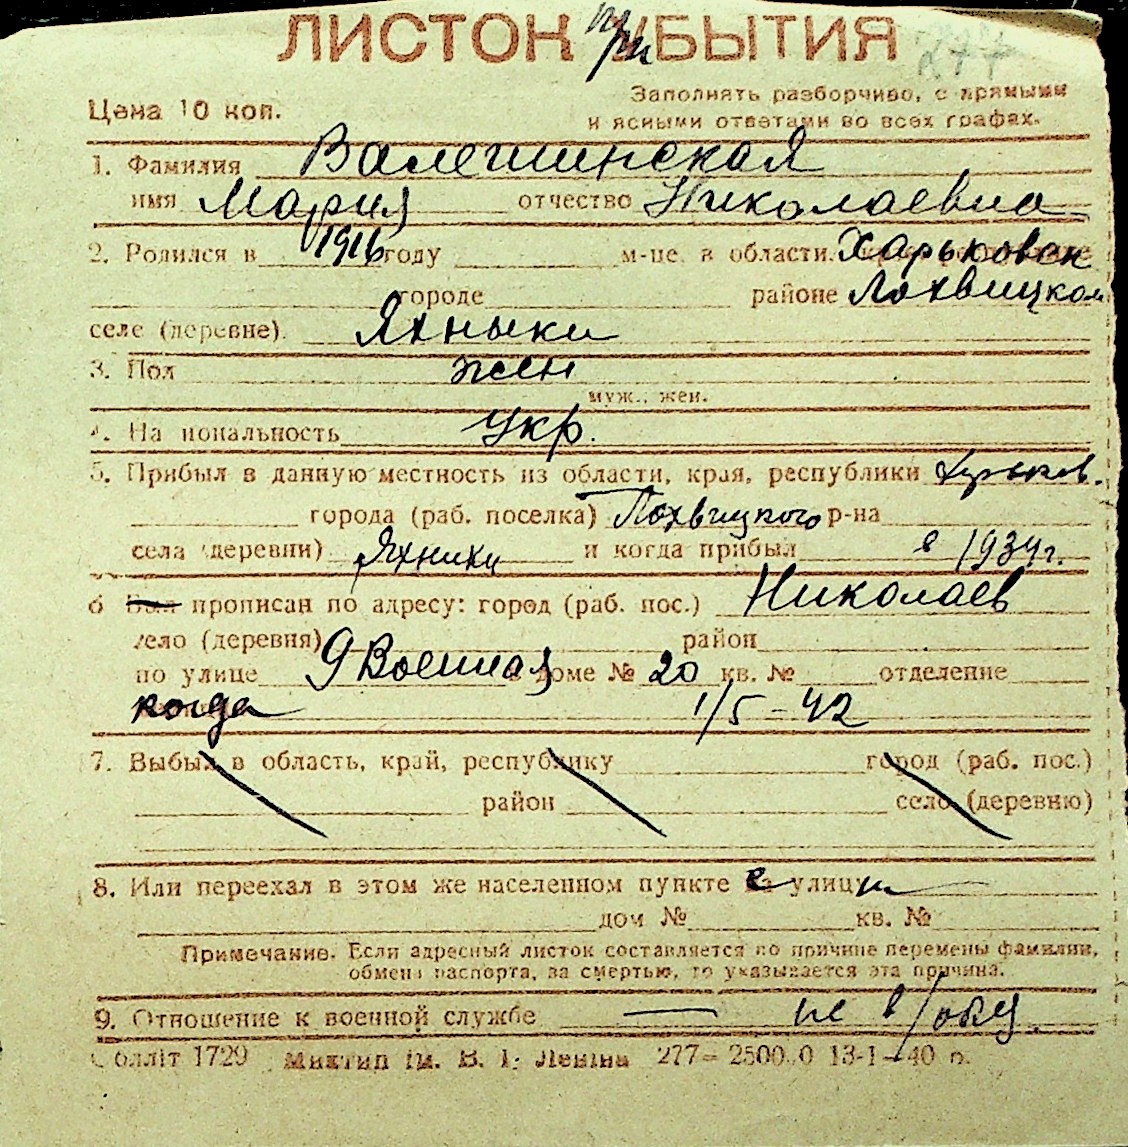 ЛИСТОК при БЫТИЯ
277
Цена 10 коп.
Заполнять разборчиво, с прямыми
и ясными ответами во всех графах.
1. Фамилия Валешинская
имя Мария отчество Николаевна
2. Родился в 1916 году м-це в области Харьковск
городе районе Лохвицком
селе (деревне) Яхныки
3. Пол жен
муж., жен.
4. Национальность Укр.
5. Прибыл в данную местность из области, края, республики Харьков.
города (раб. поселка) Лохвицкого р-на
села (деревни) Яхники и когда прибыл в 1934 г.
6 Был прописан по адресу: город (раб. пос.) Николаев
село (деревня) район
по улице 9 Военная доме № 20 кв. № отделение
когда 1/5-42
7. Выбыл в область, край, республику город (раб. пос.)
район село (деревню)
8. Или переехал в этом же населенном пункте с улицы
дом № кв. №
Примечание. Если адресный листок составляется по причине перемены фамилии,
обмена паспорта, за смертью, то указывается эта причина.
9. Отношение к военной службе — не в/обяз.
Облліт 1729 Миктип ім. В. І. Леніна 277—2500.0 13-1-40 р.